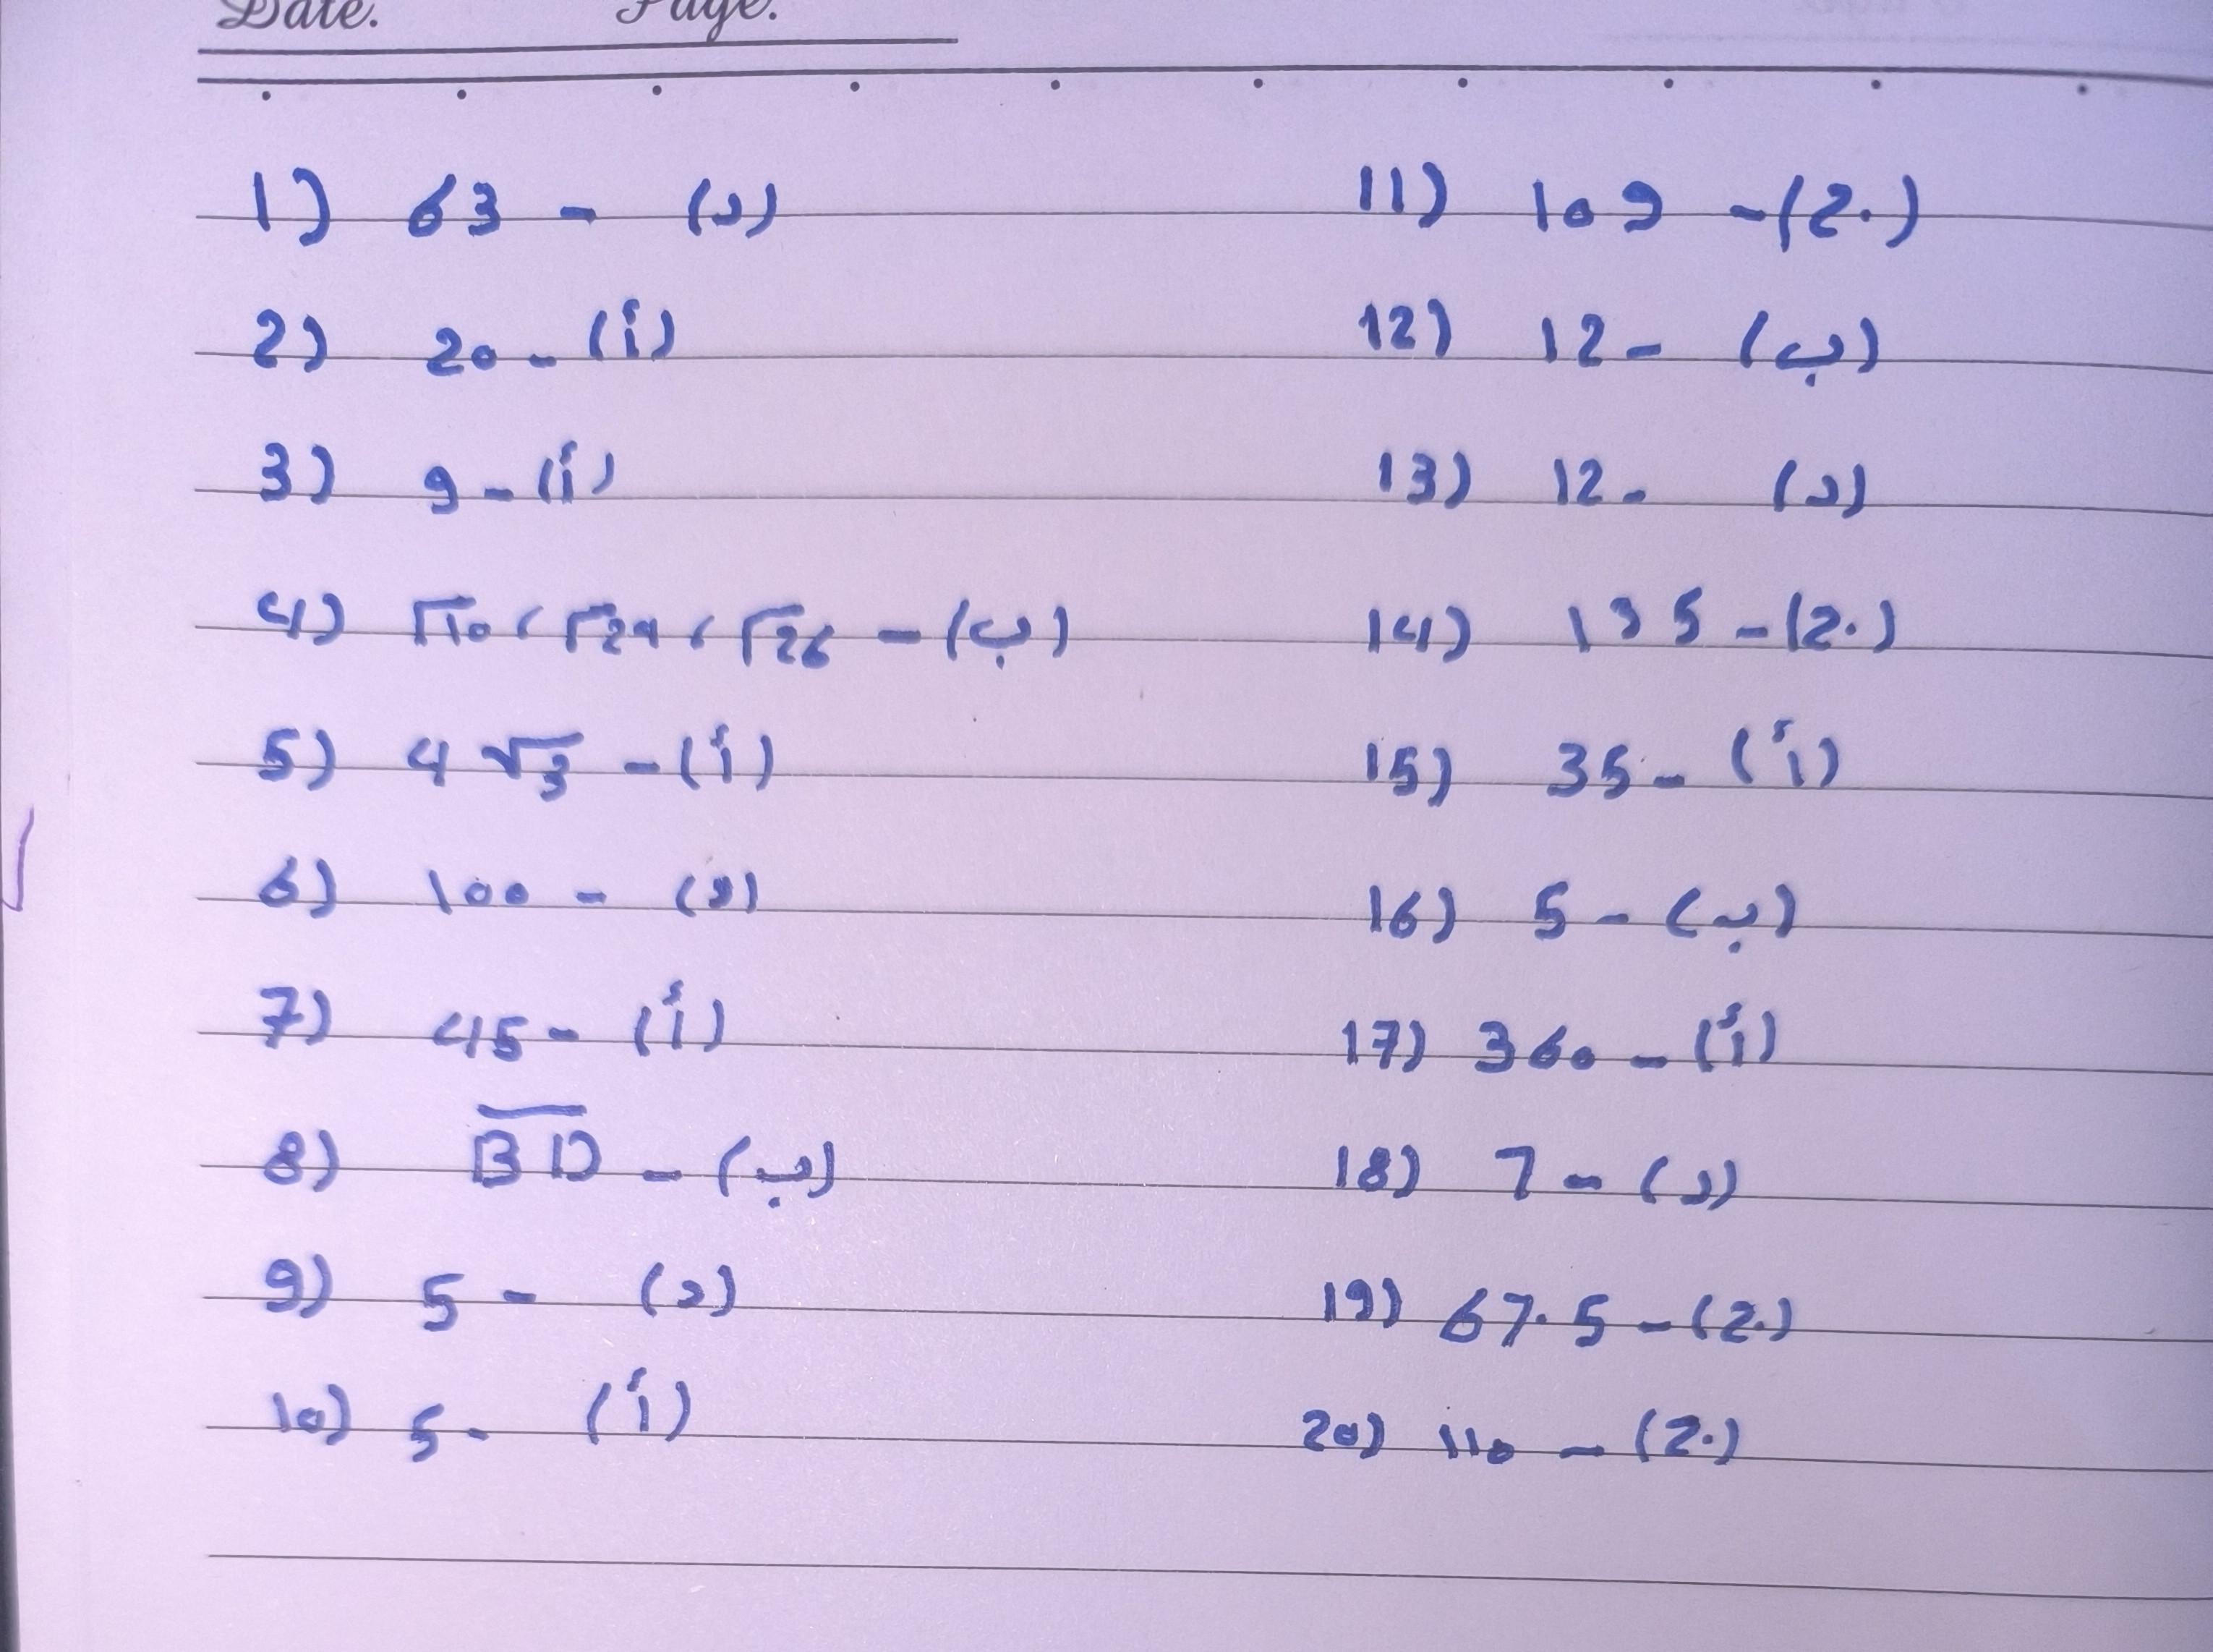 Date. Page.
1) 63 - (د)
2) 20 - (أ)
3) 9 - (أ)
4) √10 , √24 , √26 - (ب)
5) 4 √3 - (أ)
6) 100 - (د)
7) 45 - (أ)
8) B̅D̅ - (ب)
9) 5 - (د)
10) 5 - (أ)
11) 109 - (ج)
12) 12 - (ب)
13) 12 - (د)
14) 135 - (ج)
15) 35 - (أ)
16) 5 - (ب)
17) 360 - (أ)
18) 7 - (د)
19) 67.5 - (ج)
20) 110 - (ج)